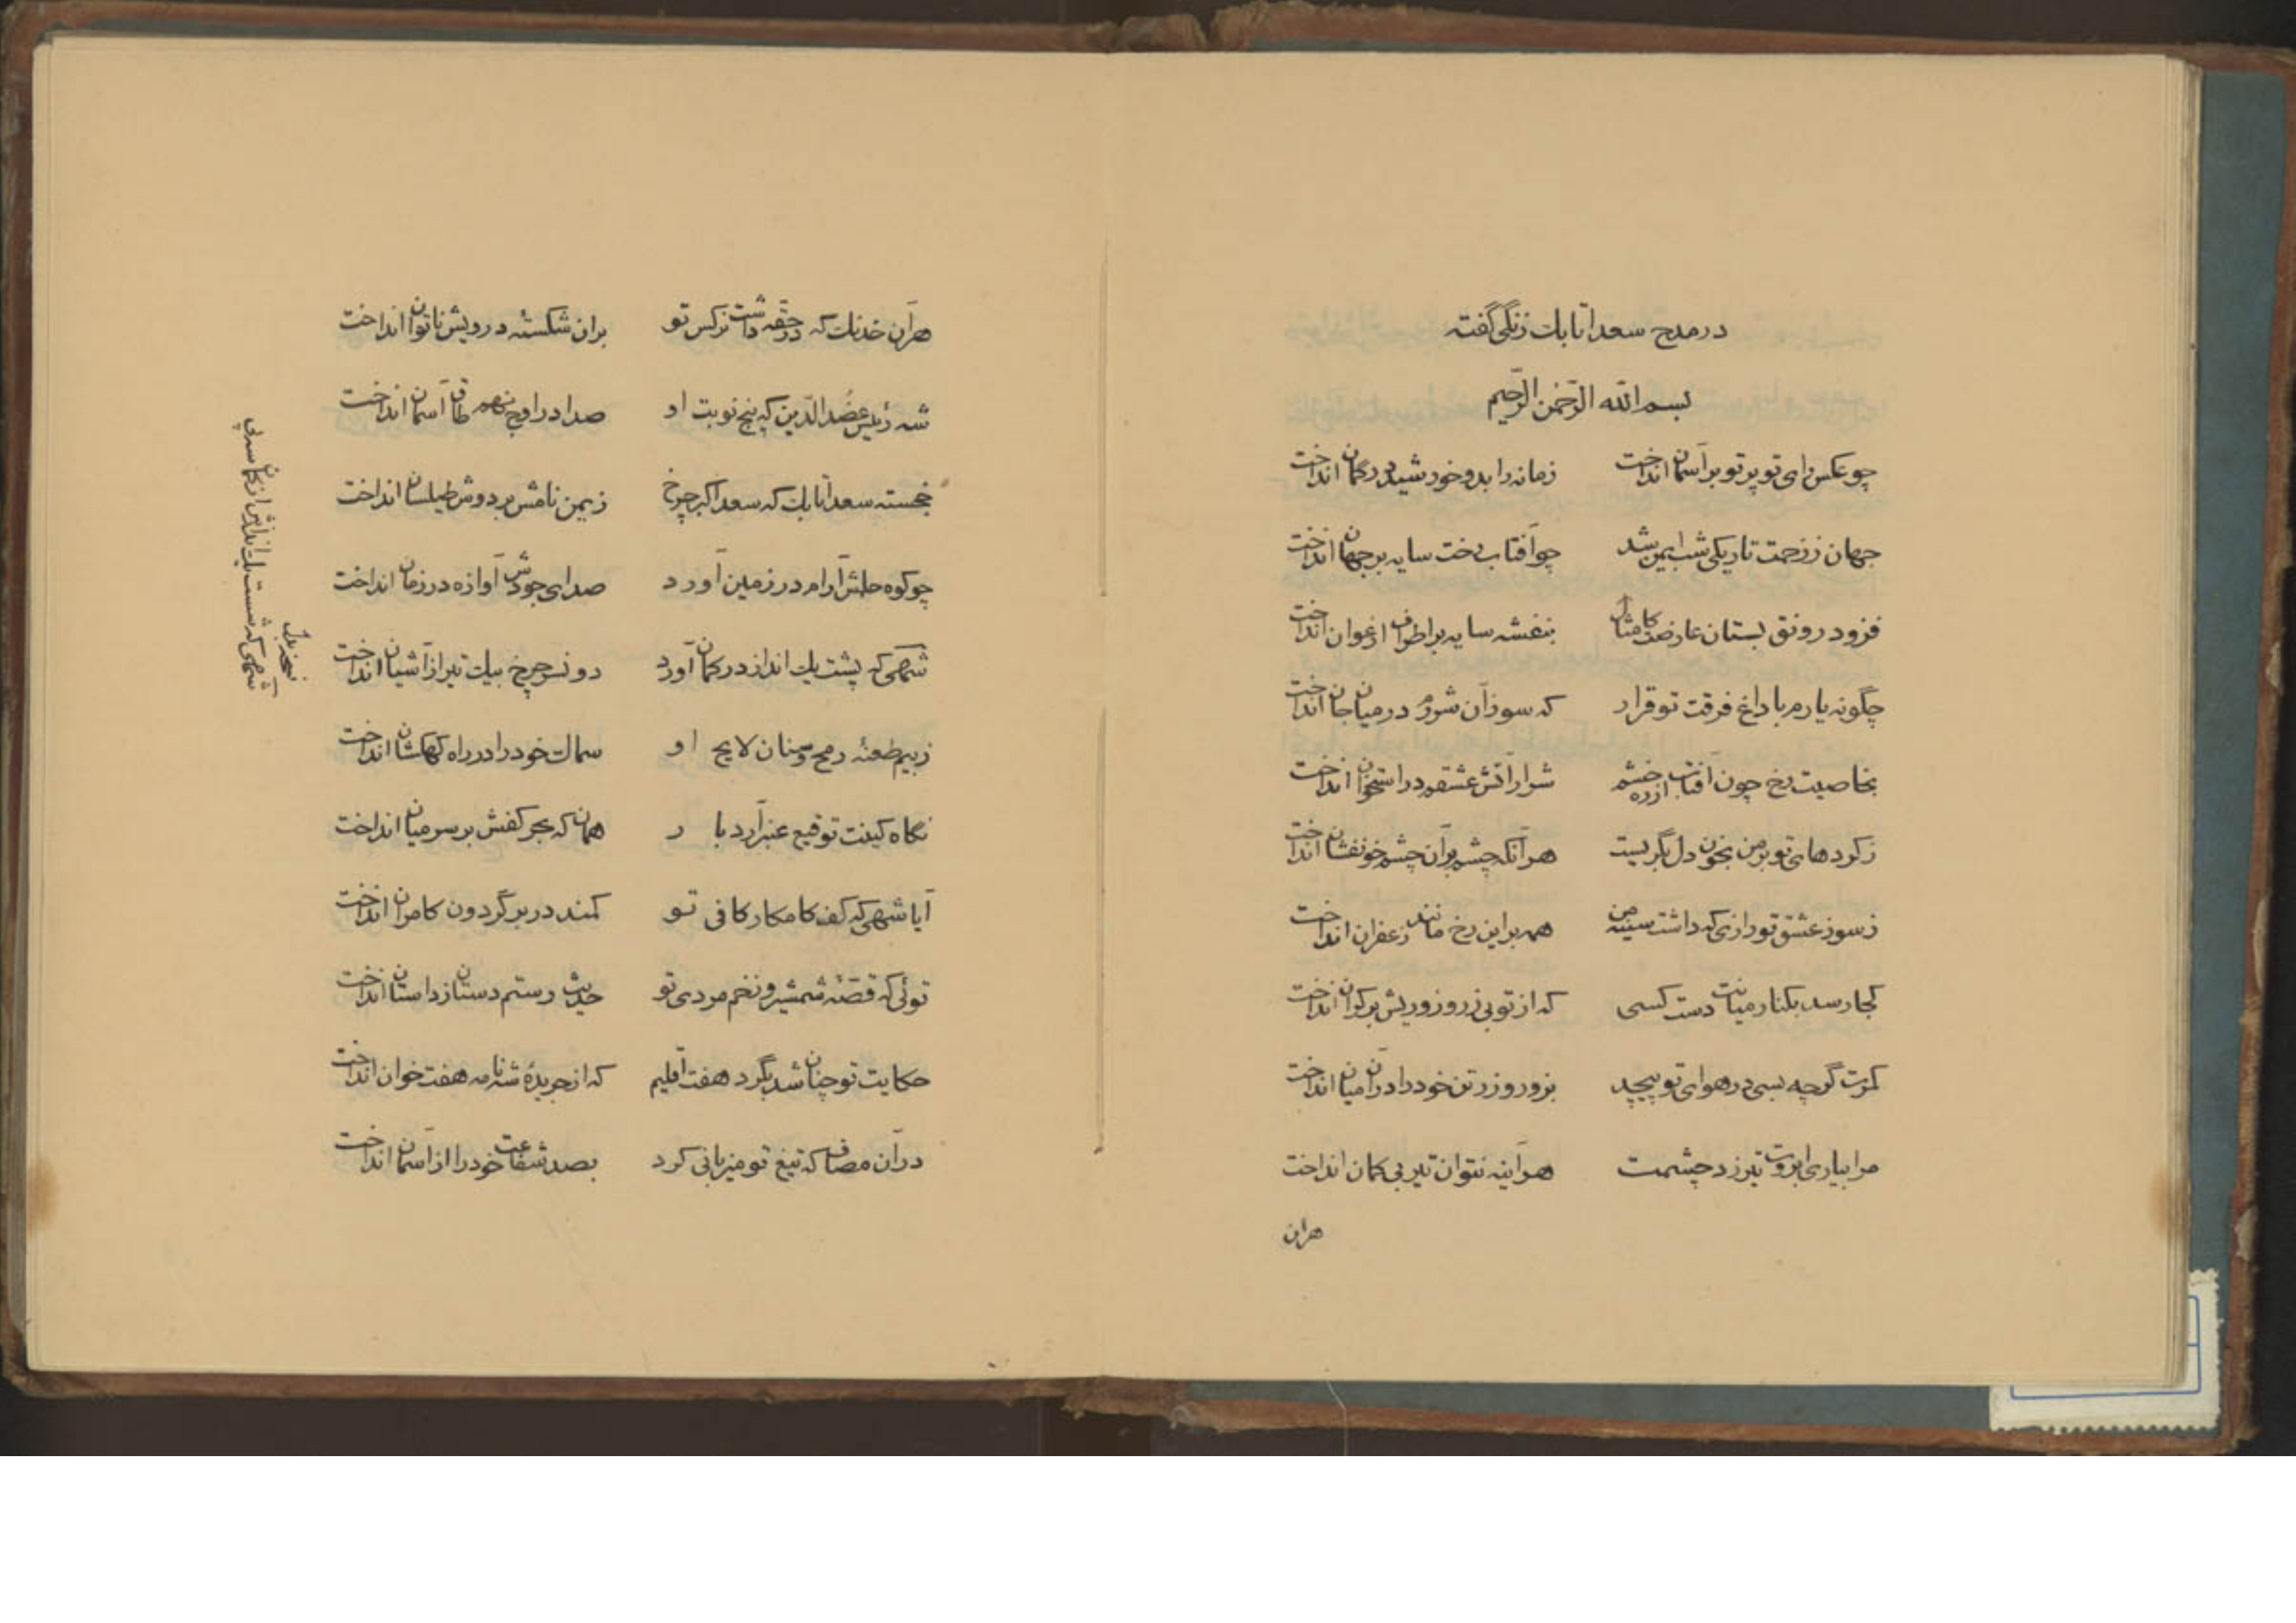 در مدح سعد اتابك زنگی گفته
بسم الله الرّحمن الرّحیم
چو عکس رای تو پرتو بر آسمان انداخت زمانه را بدو خورشید در گمان انداخت
جهان ز زحمت تاریکی شب ایمن شد چو آفتاب رخت سایه بر جهان انداخت
فزود رونق بستان عارضت کامثال بنفشه سایه بر اطراف ارغوان انداخت
چگونه یارم با داغ فرقت تو قرار که سوز آن شررم در میان جان انداخت
بخاصیت رخ چون آفتاب خشم ازره شرار آتش عشقم در استخوان انداخت
ز کردهای تو بر من بخون دل بگریست هر آنکه چشم بر آن چشم خونفشان انداخت
ز سوز عشق تو رازی که داشت سینه من همه بر این رخ مانند زعفران انداخت
کجا رسد بکنار میانت دست کسی که از تو بی زر و زوریش بر کران انداخت
کمرت گرچه بسی در هوای تو پیچید بزور و زر تن خود را در آن میان انداخت
مرا بیاری ابروت تیر زد چشمت هر آینه نتوان تیر بی کمان انداخت
هرآن
هر آن خدنك که در حقه داشت نرکس تو بران شکستهٔ درویش ناتوان انداخت
شه رئیس عضُد الدّین که پنج نوبت او صدا در اوج نهم طاق آسمان انداخت
خجسته سعد اتابك که سعد اکبر چرخ ز یمن نامش بر دوش طیلسان انداخت
چو کوه حلمش آرام در زمین آورد صدای جودش آوازه در زمان انداخت
شهی که پشت یك انداز در کمان آورد دو نسر چرخ بیك تیر از آشیان انداخت
ز بیم طعنهٔ رمح و سنان لایح او سماك خود را در راه کهکشان انداخت
نگاه کینت توقیع عنبر آرد بار همان که بحر کفش بر سر میان انداخت
آیا شهی که کف کامکار کافی تو کمند در بر گردون کامران انداخت
توئی که قصّهٔ شمشیر و زخم مردی تو حدیث رستم دستان ز داستان انداخت
حکایت تو چنان شد بگرد هفت اقلیم که از جریدهٔ شه نامه هفت خوان انداخت
در آن مصاف که تیغ تو میزبانی کرد بصد شفاعت خود را از آسمان انداخت
نسخه بدل
شهی که شست یك اندازش از کمان سپهر